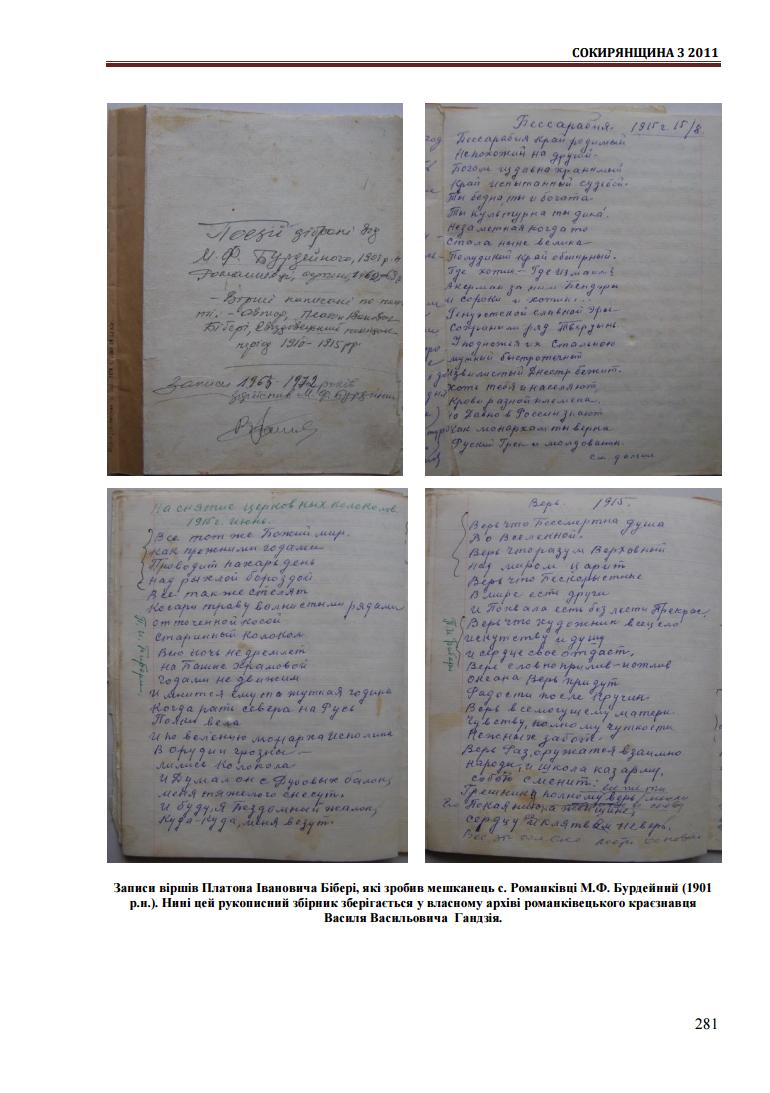 СОКИРЯНЩИНА 3 2011
Поезії зібрані від
М.Ф. Бурдейного, 1901 р.н.
- Вірші написані по
- Автор, Платон Іванович
Бібері,
період 1910-1915 рр.
Записи 1965-1972 років
здійснив М.Ф. Бурдейний
Бессарабия. 1915 г. 15/8.
Бессарабия край родимый
Непохожий на другой.
Богом издавна хранимый
Край испытанный судьбой.
Ты бедна, ты и богата
Ты культурна ты дика.
Незаметная когда то
Стала ныне велика
Полудикий край обширный.
Где хотин - Где Измаил
Акерман за ним Бендеры
и Сороки и хотин...
Генуэтской славной Эры
Сохранили ряд Твердынь
У подножья их Стальною
быстротечный
Извилистый Днестр бежит.
Хоть тебя и населяют
Крови разной племена.
Но Давно в России знают
Как монархам ты верна
Руский Грек и молдован
На снятие церковных колоколов
1915 г. июнь.
Все тот же Божий мир.
Как прежними годами
Проводит пахарь день
Над рыхлой бороздой
Все также стелят
Косари траву волнистыми рядами
отточенной косой
Старинный Колокол
Всю ночь не дремлет
на Башне Храмовой
Годами не движим
И мнится ему та жуткая година
Когда рать севера на Русь
Полки вела
И по веленью монарха Исполина
В орудия грозны
лились Колокола
И Думал он с Дубовых балок,
меня тяжелого снесут.
И буду, я Бездомный жалок,
Куда-куда, меня везут.
Верь. 1915.
Верь что Бессмертна душа
Во Вселенной.
Верь что разум Верховный
над миром царит
Верь что Бескорыстные
В мире есть други
и Похвала есть без лести
Верь что художник всецело
искуству и душу
и сердце свое отдаст.
Верь словно прилив-отлив
океана Верь придут
Радости после Кручин.
Верь всемогущему матери
Чувству, полному чуткости
Нежных забот.
Верь Раз,оружатся взаимно
Народы, и школа казарму,
собою сменит:
Грешнику полному верь
женщине,
сердцу и клятвам не верь.
П.И. Бибери
Записи віршів Платона Івановича Бібері, які зробив мешканець с. Романківці М.Ф. Бурдейний (1901
р.н.). Нині цей рукописний збірник зберігається у власному архіві романківецького краєзнавця
Василя Васильовича Гандзія.
281